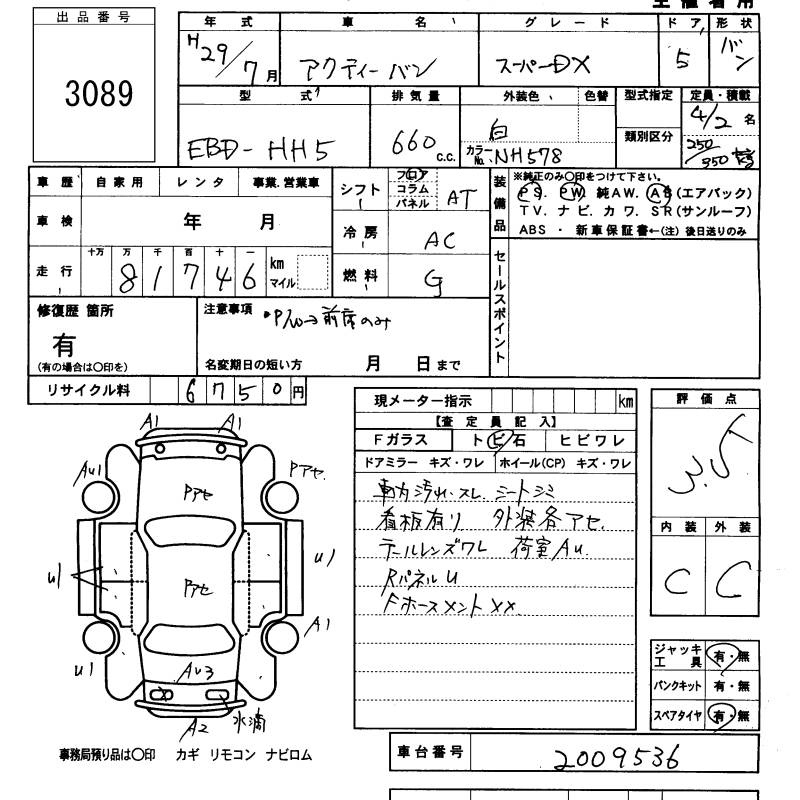 出品番号
3089
年式 車名 グレード ドア 形状
H29/7月 アクティーバン スーパーDX 5 バン
型式 排気量 外装色 色替 型式指定 定員・積載
類別区分
EBD-HH5 660 c.c. 白 カラーNo. NH578 4/2名
250/350
車歴 自家用 レンタ 事業.営業車
シフト フロア コラム パネル AT
装備品
※純正のみ〇印をつけて下さい。
PS. PW. 純AW. AB(エアバック)
TV. ナビ. カワ. SR(サンルーフ)
ABS ・ 新車保証書←(注) 後日送りのみ
車検 年 月
冷房 AC
走行 十万 万 千 百 十 一
8 1 7 4 6 km マイル
燃料 G
セールスポイント
修復歴 箇所
有
(有の場合は〇印を)
注意事項 ・P/W→前席のみ
名変期日の短い方 月 日まで
リサイクル料 6 7 5 0 円
現メーター指示 km
【査定員記入】
Fガラス トビ石 ヒビワレ
ドアミラー キズ・ワレ ホイール(CP) キズ・ワレ
車内汚れ.スレ. シートシミ
看板有り 外装各アセ.
テールレンズワレ 荷室AU.
RパネルU
Fホースメント××
評価点
3.5
内装 外装
C C
ジャッキ工具 有・無
パンクキット 有・無
スペアタイヤ 有・無
A1 A1
AU1 Pアセ Pアセ.
U1 U1
Pアセ
A1
U1 AU3
× A2 水滴
事務局預り品は〇印 カギ リモコン ナビロム
車台番号 2009536